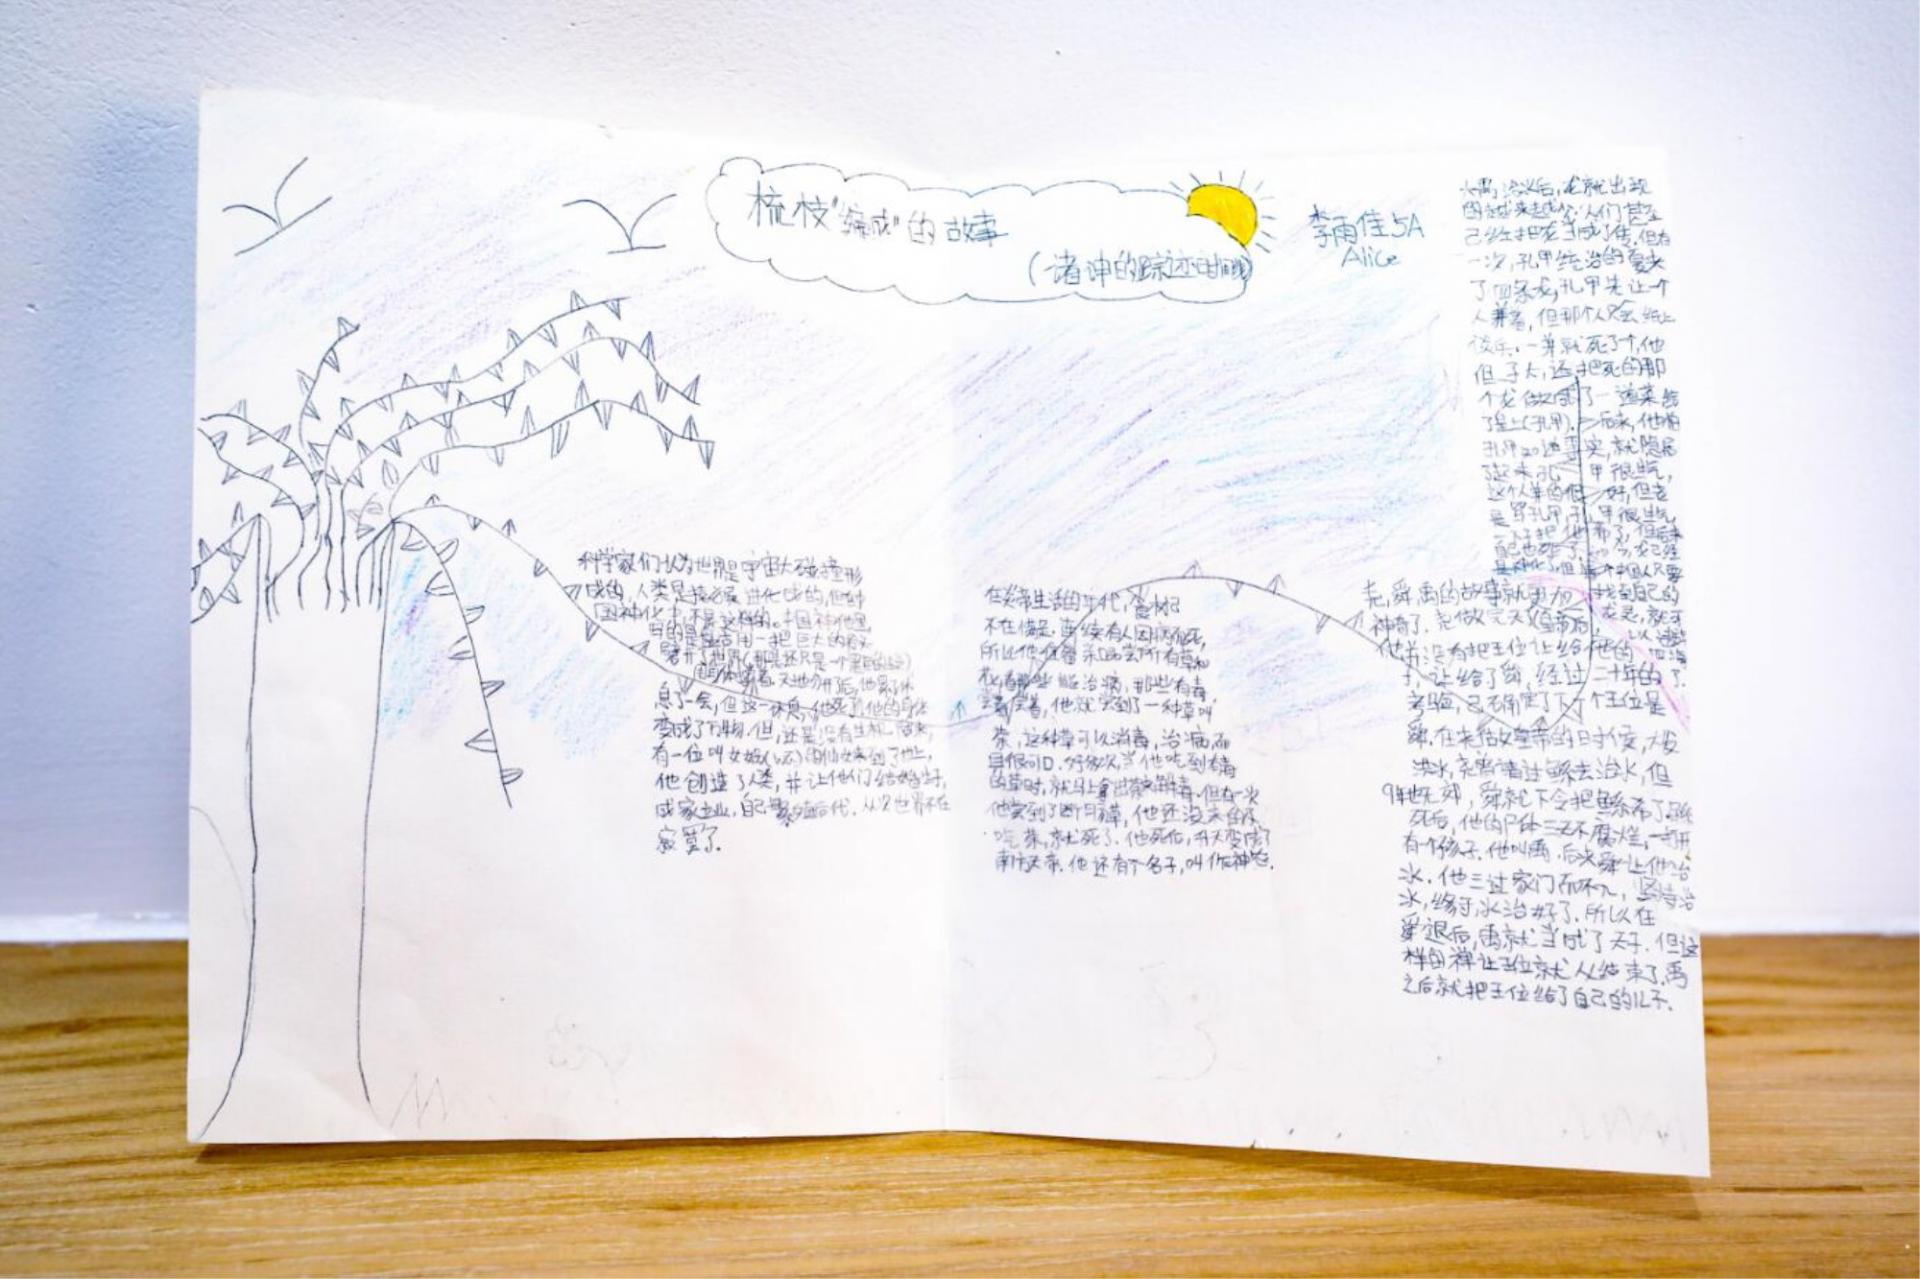 梳枝"编成"的故事
(诸神的踪迹时间线)
李雨佳 5A
Alice
科学家们认为世界是宇宙大碰撞形
成的,人类是慢慢 进化成的,但中
国神话中不是这样的。中国神话里
目的是盘古用一把巨大的斧头
劈开了世界(那只是还只是一个黑白的)
天地分开后,他累了休
息了一会,但这一休息,他死了他的身体
变成了万物.但,还是没有生机.后来,
有一位叫女娲(wā)的仙女来到了地上,
他创造了人类,并让他们结婚生子,
成家立业.自己繁殖后代.从次世界不在
寂寞了.
在炎帝生活的年代,食材已
不在借足.连续有人因病而死,
所以他准备亲口尝所有草和
花,看那些能治病,那些有毒
尝着尝着,他就尝到了一种草叫
茶,这种草可以消毒,治病而
且很可口.好多次当他吃到有毒
的草时,就马上拿出茶来解毒.但有一次
他尝到了断肠草,他还没来的及
吃茶,就死了.他死后,升天变成了
南方天帝.他还有个名子,叫作神农.
尧,舜,禹的故事就更为
神奇了.尧做完天(皇帝)后
他并没有把王位让给他的
子,让给了舜,经过二十年的
考验,已不确定了下个王位是
舜.在尧做皇帝的日时候,大发
洪水,尧曾请过鲧去治水,但
9年也无效,舜就下令把鲧杀了.鲧
死后,他的尸体三天不腐烂,一打开
有个孩子.他叫禹.后来舜让他治
水.他三过家门而不入,坚持治
水,终于,水治好了.所以在
舜退后,禹就当成了天子.但这
样的禅让王位就从结束了.禹
之后就把王位给了自己的儿子.
大禹,治水后,龙就出现
的越来越少.人们甚至
已经把龙当成了传.但有
一次,孔甲统治的夏来
了四条龙,孔甲先让一个
人养着,但那个人只会纸上
谈兵.一养就死了个,他
但子大,还把死的那
个龙做成了一道菜给
了皇上(孔甲).后来,他怕
孔甲知道事实,就隐居
了起来.孔甲很生气,
这个人养的很好,但老
是骂孔甲.孔甲很生气,
一下子把他杀了,但后来
自己也死了.
找到自己的
龙是,就可
以
四海
了.